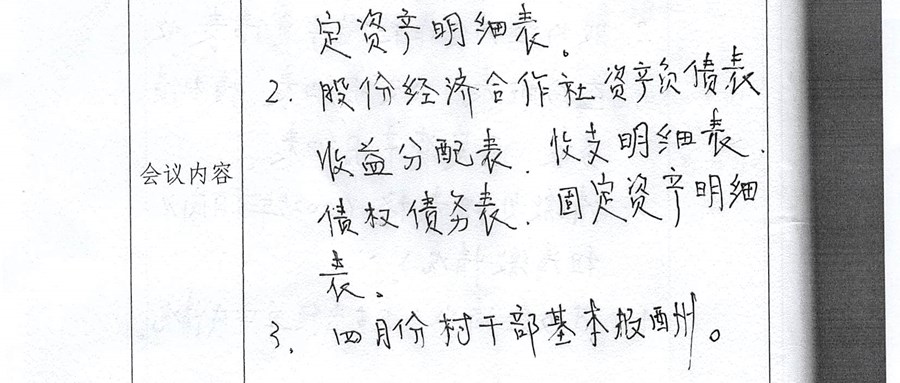 定资产明细表。
2. 股份经济合作社资产负债表
收益分配表、收支明细表、
会议内容
债权债务表、固定资产明细
表。
3. 四月份村干部基本报酬。